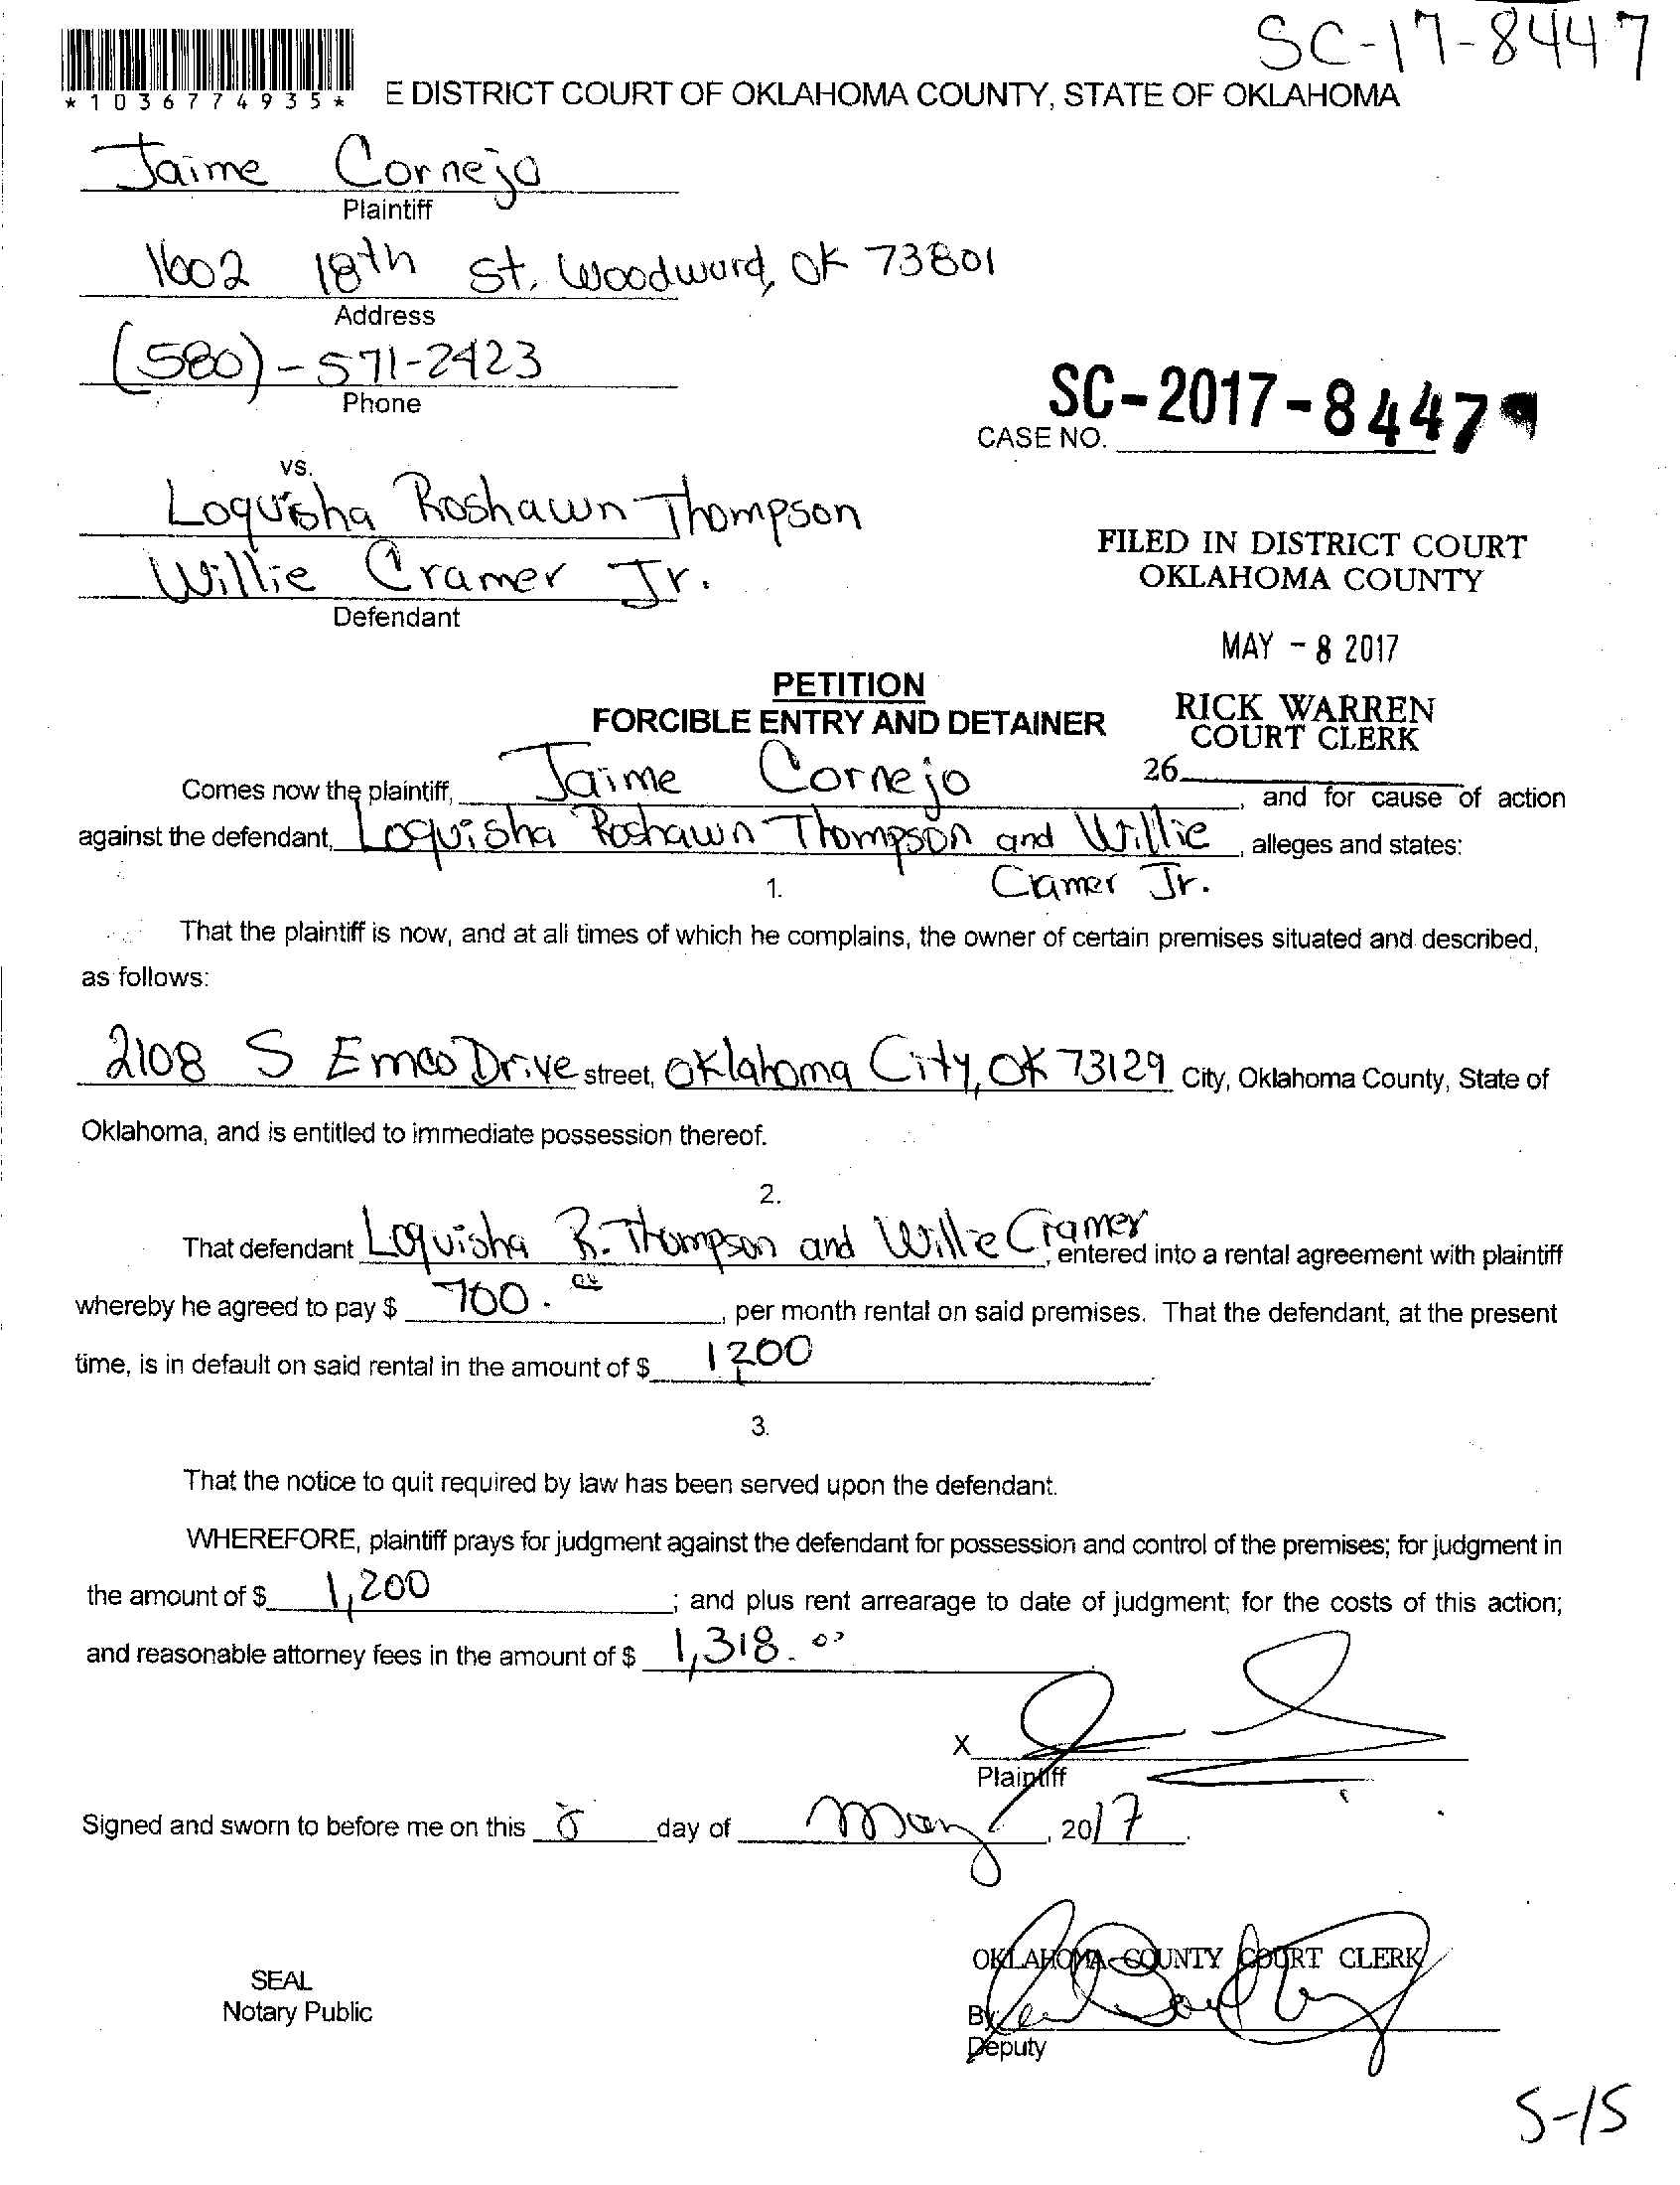 SC-17-8447
*1036774935*
E DISTRICT COURT OF OKLAHOMA COUNTY, STATE OF OKLAHOMA
Jaime Cornejo
Plaintiff
1602 18th St. Woodward, OK 73801
Address
(580)-571-2423
Phone
SC-2017-8447
CASE NO.
vs.
Loquisha Roshawn Thompson
Willie Cramer Jr.
Defendant
FILED IN DISTRICT COURT
OKLAHOMA COUNTY
MAY - 8 2017
RICK WARREN
COURT CLERK
26
PETITION
FORCIBLE ENTRY AND DETAINER
Comes now the plaintiff, Jaime Cornejo, and for cause of action
against the defendant, Loquisha Roshawn Thompson and Willie, alleges and states:
Cramer Jr.
1.
That the plaintiff is now, and at all times of which he complains, the owner of certain premises situated and described,
as follows:
2108 S Emco Drive street, Oklahoma City, OK 73129 City, Oklahoma County, State of
Oklahoma, and is entitled to immediate possession thereof.
2.
That defendant Loquisha R. Thompson and Willie Cramer, entered into a rental agreement with plaintiff
whereby he agreed to pay $ 700. , per month rental on said premises. That the defendant, at the present
time, is in default on said rental in the amount of $ 1200.
3.
That the notice to quit required by law has been served upon the defendant.
WHEREFORE, plaintiff prays for judgment against the defendant for possession and control of the premises; for judgment in
the amount of $ 1,200; and plus rent arrearage to date of judgment; for the costs of this action;
and reasonable attorney fees in the amount of $ 1,318.00
X
Plaintiff
Signed and sworn to before me on this 8 day of May, 2017.
OKLAHOMA COUNTY COURT CLERK
SEAL
Notary Public
By
Deputy
5-15